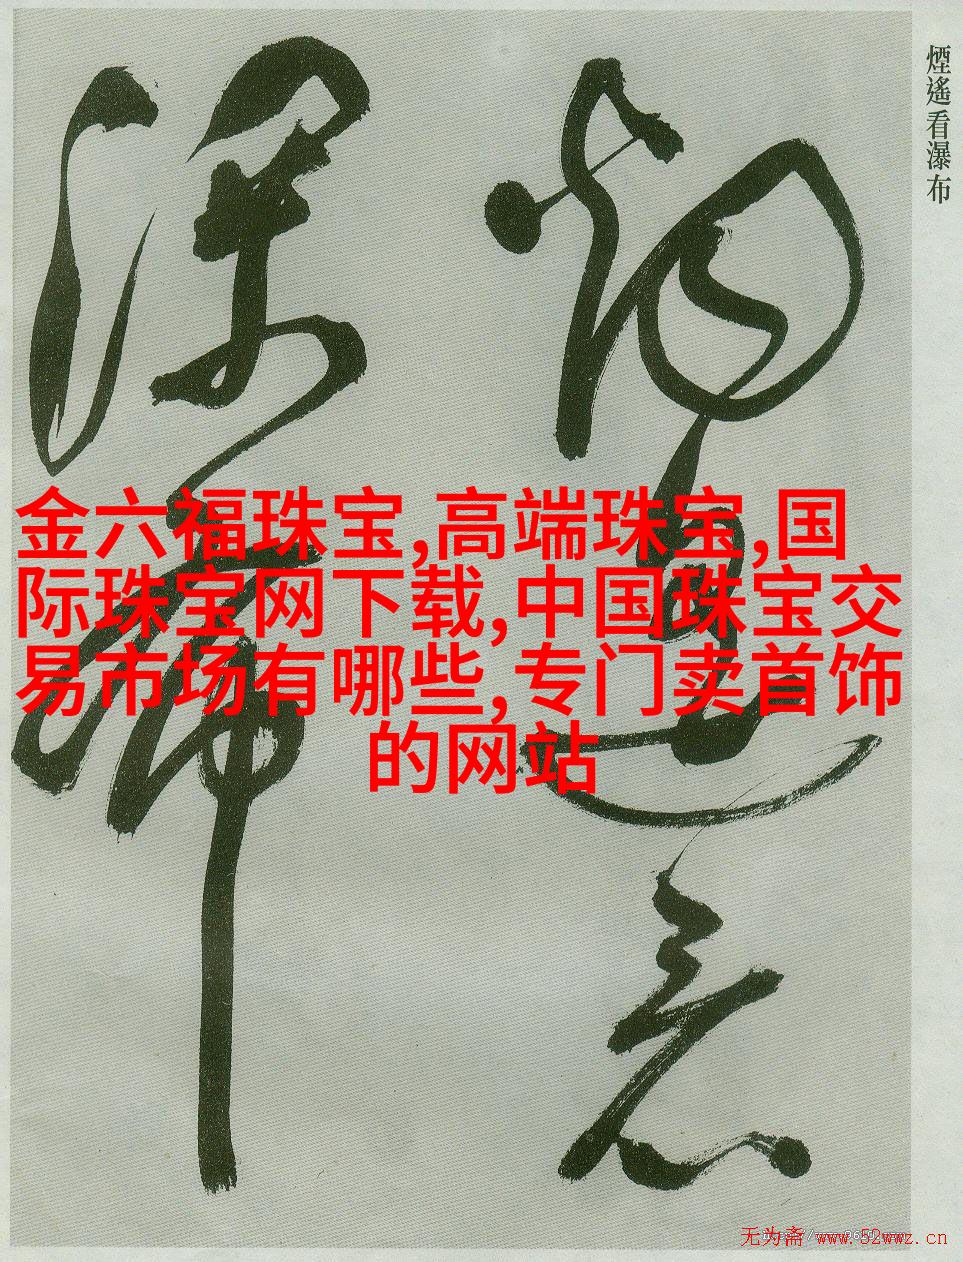 煙遙看瀑布
煙遙看
瀑布
金六福珠宝,高端珠宝,国
际珠宝网下载,中国珠宝交
易市场有哪些,专门卖首饰
的网站
无为斋 www.52wwz.cn